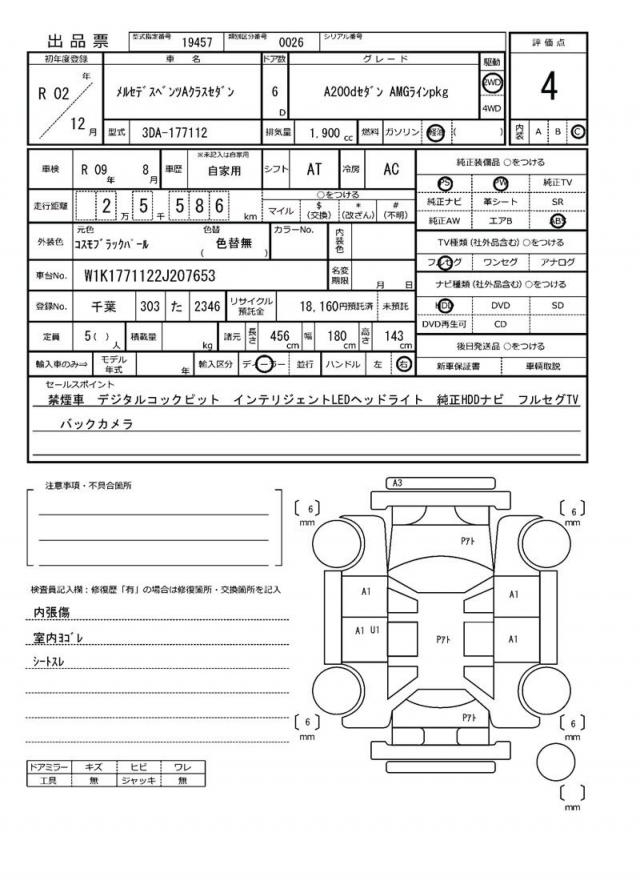 出品票 型式指定番号 19457 類別区分番号 0026 シリアル番号
初年度登録 車 名 ドア数 グレード 駆動 評価点
R 02 年 12 月 メルセデスベンツAクラスセダン 6 D A200dセダン AMGラインpkg 2WD 4WD 4
型式 3DA-177112 排気量 1.900 cc 燃料 ガソリン 軽油 ( ) 内装 A B C
車検 R 09 年 8 月 車歴 ※未記入は自家用 自家用 シフト AT 冷房 AC
純正装備品 ○をつける
PS PW 純正TV
純正ナビ 革シート SR
純正AW エアB ABS
走行距離 2 万 5 千 5 8 6 km ○をつける
マイル $ (交換) * (改ざん) # (不明)
TV種類(社外品含む) ○をつける
フルセグ ワンセグ アナログ
外装色 元色 コスモブラックパール 色替 ( 色替無 ) カラーNo. 内装色
車台No. W1K1771122J207653 名変期限 月 日
ナビ種類(社外品含む) ○をつける
HDD DVD SD
DVD再生可 CD
登録No. 千葉 303 た 2346 リサイクル預託金 18,160円預託済 未預託
定員 5( ) 人 積載量 kg 諸元 長さ 456 cm 幅 180 cm 高さ 143 cm
後日発送品 ○をつける
新車保証書 車輌取説
輸入車のみ⇒ モデル年式 年 輸入区分 ディーラー 並行 ハンドル 左 右
セールスポイント
禁煙車 デジタルコックピット インテリジェントLEDヘッドライト 純正HDDナビ フルセグTV
バックカメラ
注意事項・不具合箇所
検査員記入欄：修復歴「有」の場合は修復箇所・交換箇所を記入
内張傷
室内ヨゴレ
シートスレ
ドアミラー キズ ヒビ ワレ
工具 無 ジャッキ 無
A3
[ 6 ] mm
[ 6 ] mm
Pアト
A1
A1
A1 U1
Pアト
A1
Pアト
[ 6 ] mm
[ 6 ] mm
[ ] mm